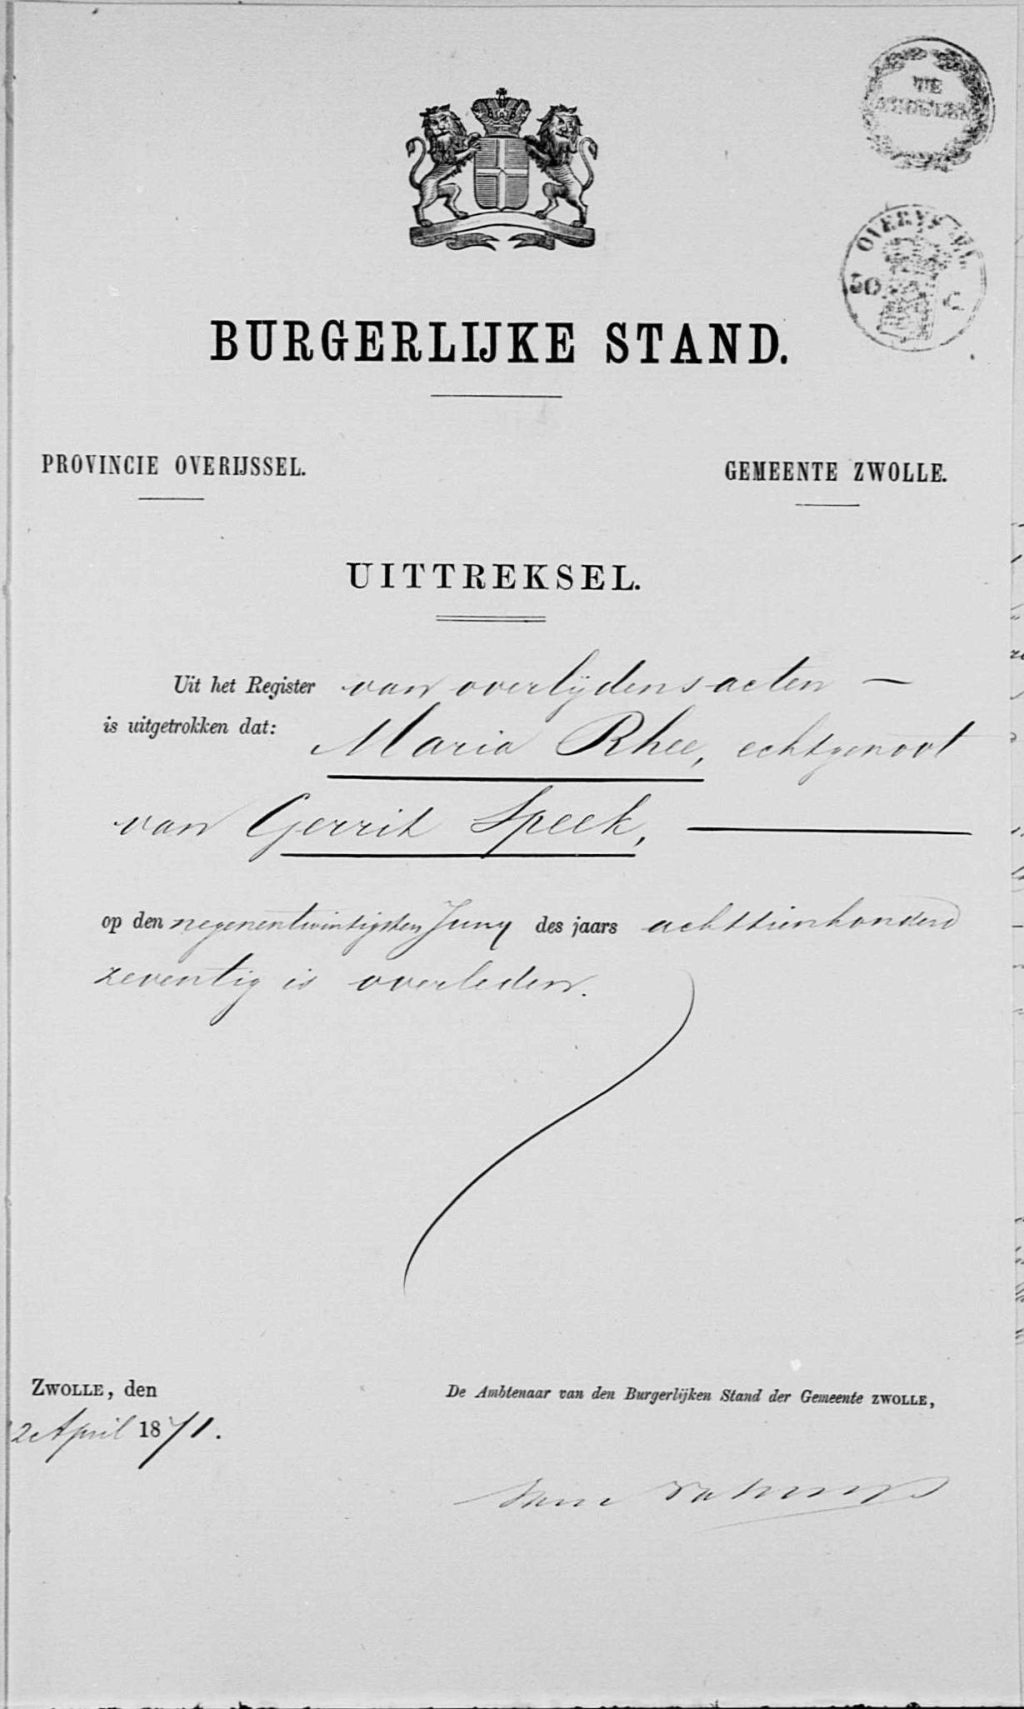 OVERYSSEL
50 C.
BURGERLIJKE STAND.
PROVINCIE OVERIJSSEL.
GEMEENTE ZWOLLE.
UITTREKSEL.
Uit het Register van overlijdensacten —
is uitgetrokken dat: Maria Rhee, echtgenoot
van Gerrit Speek,
op den negenentwintigsten Juny des jaars achttienhonderd
zeventig is overleden.
ZWOLLE, den
De Ambtenaar van den Burgerlijken Stand der Gemeente ZWOLLE,
April 1871.